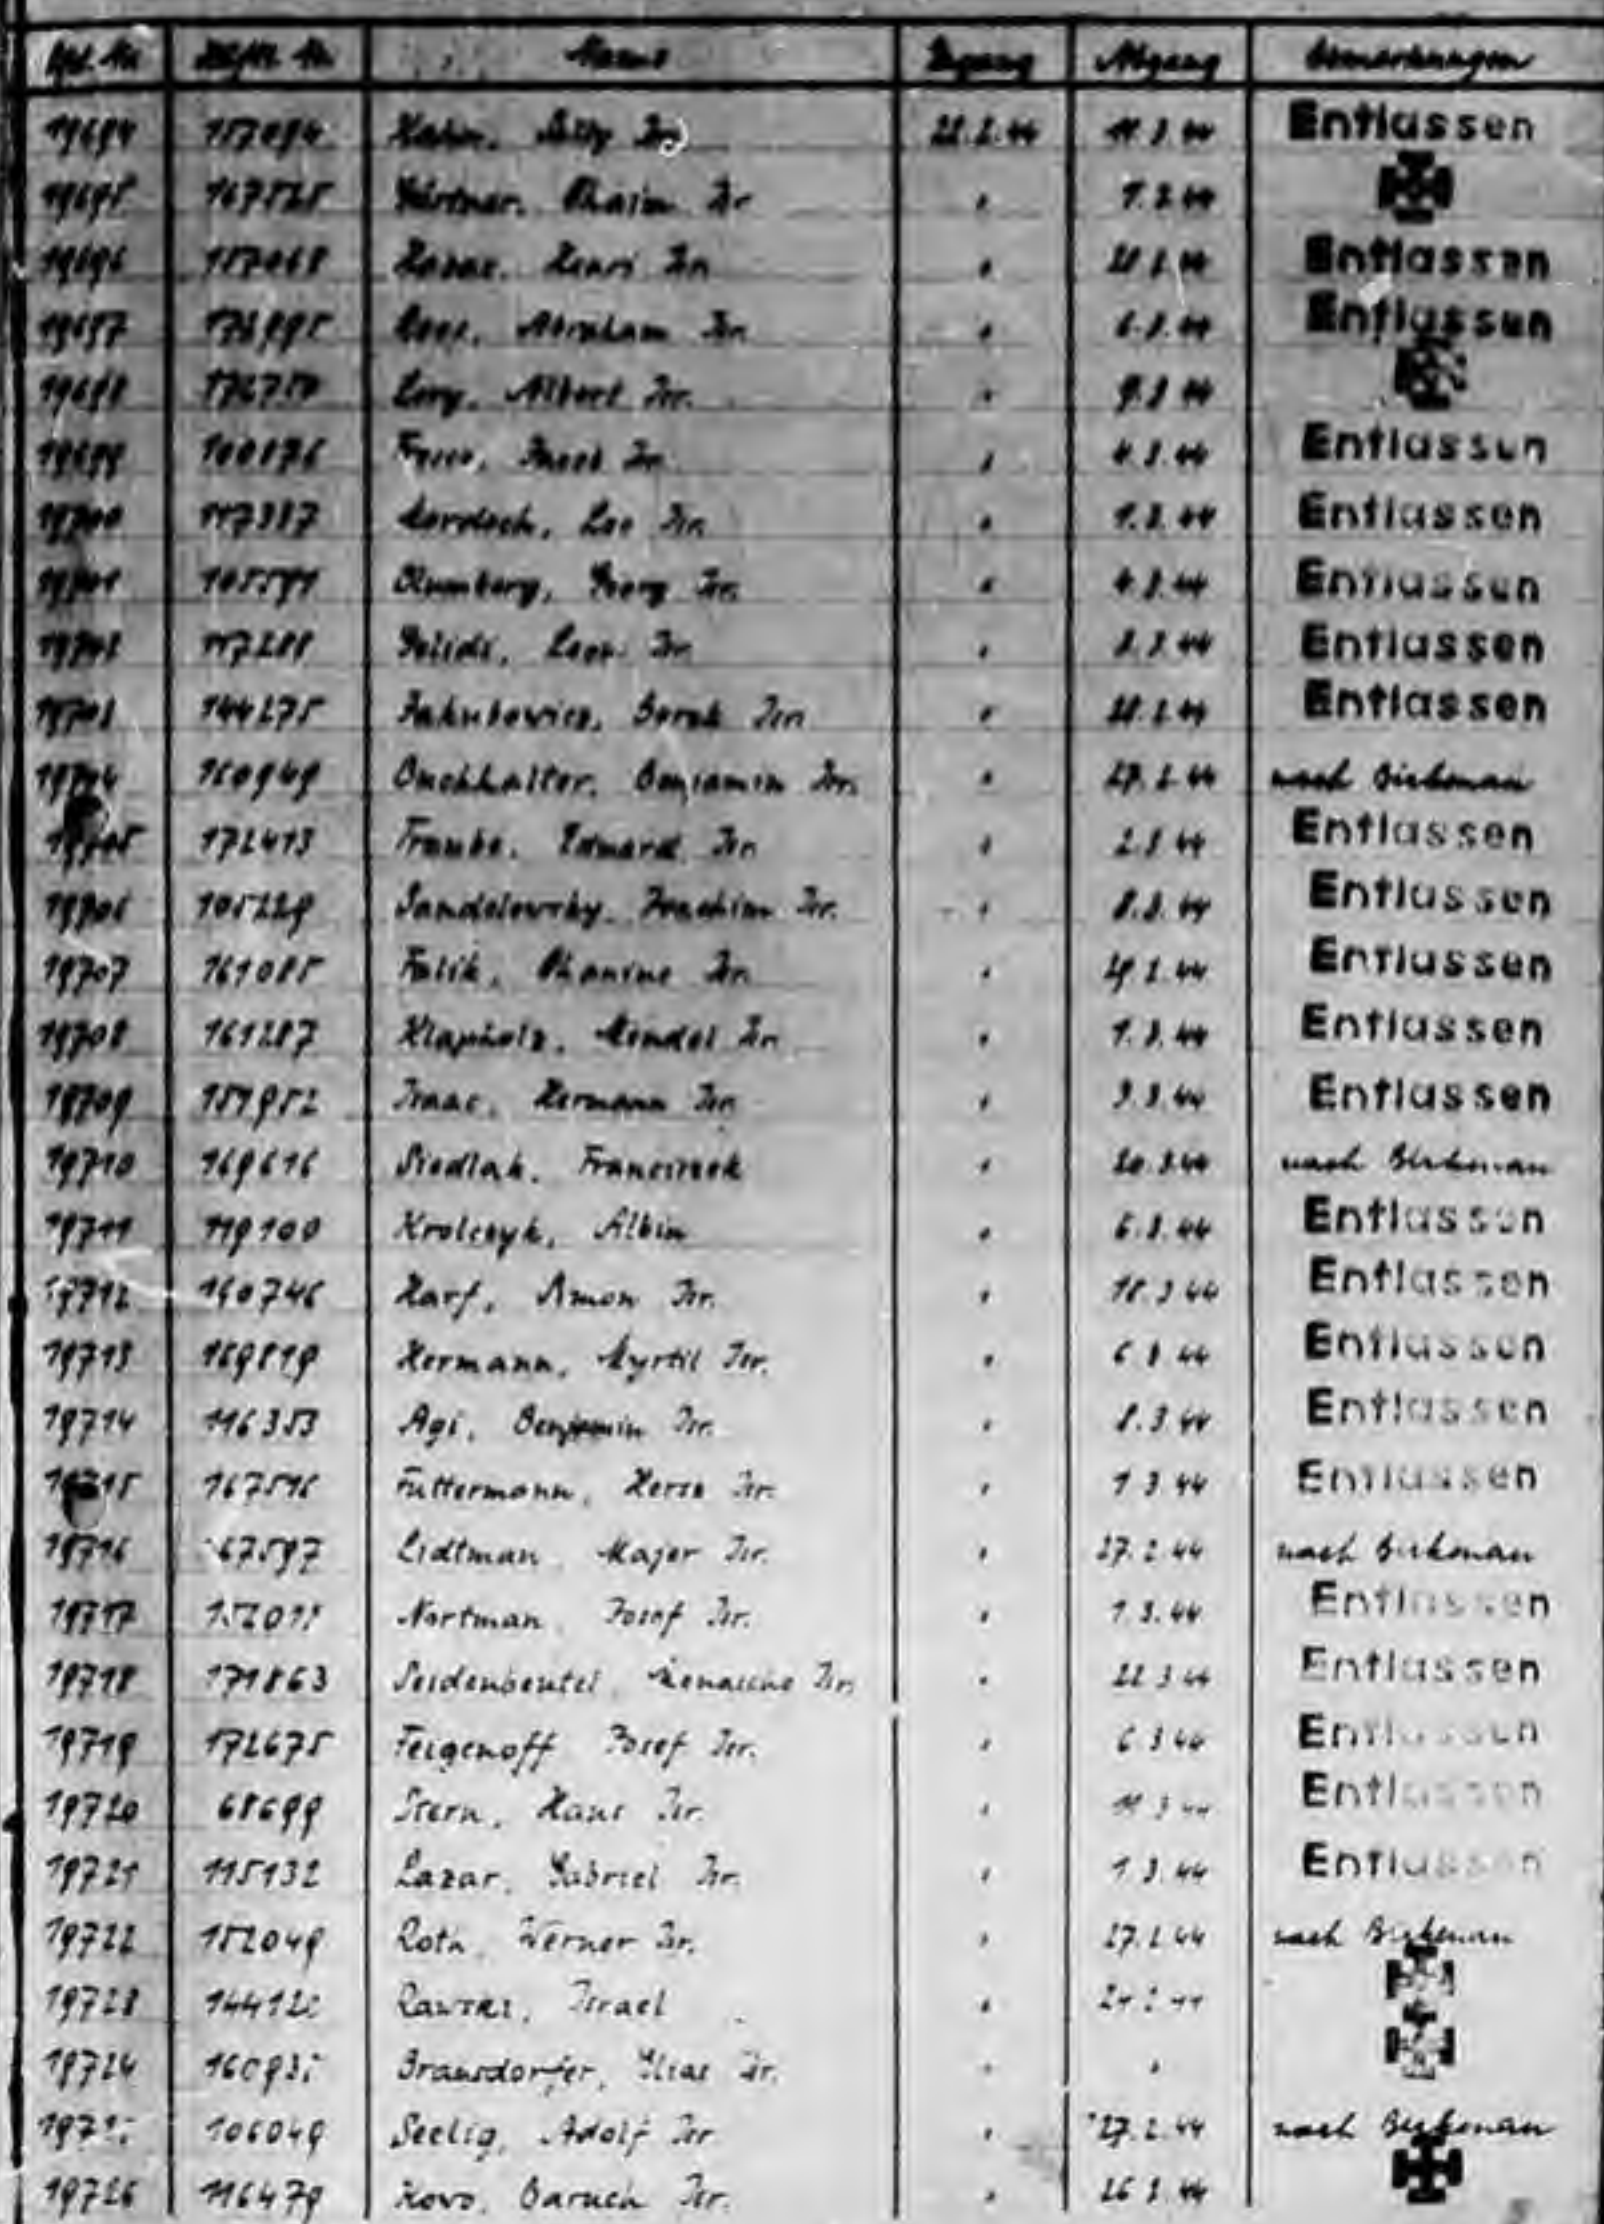 Lfd. Nr. Häftl. Nr. Name Zugang Abgang Bemerkungen
19694 157094 Hahn, Willy Isr. 22.2.44 11.3.44 Entlassen
19695 167525 Gärtner, Chaim Isr. " 1.3.44
19696 157068 Hazac, Henri Isr. " Entlassen
19697 Abraham Isr. " 6.3.44 Entlassen
19698 Levy, Albert Isr. " 9.3.44
19699 100876 Isr. " 4.3.44 Entlassen
19700 117387 Mordoch, Leo Isr. " 1.3.44 Entlassen
19701 105591 Blumberg, Georg Isr. " 4.3.44 Entlassen
19702 117288 Leon Isr. " 8.3.44 Entlassen
19703 144275 Jakubowicz, Berek Isr. " 28.2.44 Entlassen
19704 160949 Buchhalter, Benjamin Isr. " 27.2.44 nach Birkenau
19705 172413 Traube, Eduard Isr. " 2.3.44 Entlassen
19706 105229 Sandelowsky, Joachim Isr. " 8.3.44 Entlassen
19707 161085 Falik, Chanine Isr. " 29.2.44 Entlassen
19708 161287 Klapholz, Mendel Isr. " 1.3.44 Entlassen
19709 151952 Isaac, Hermann Isr. " 3.3.44 Entlassen
19710 169616 Siedlak, Franciszek " 20.3.44 nach Birkenau
19711 119100 Krolczyk, Albin " 6.3.44 Entlassen
19712 160746 Harf, Simon Isr. " 18.3.44 Entlassen
19713 169819 Hermann, Myrtil Isr. " 6.3.44 Entlassen
19714 116353 Agi, Benjamin Isr. " 8.3.44 Entlassen
19715 167516 Futtermann, Hersz Isr. " 1.3.44 Entlassen
19716 67597 Lidtman, Majer Isr. " 27.2.44 nach Birkenau
19717 Nortman, Josef Isr. " 1.3.44 Entlassen
19718 171863 Seidenbeutel, Menasche Isr. " 22.3.44 Entlassen
19719 172675 Feigenoff, Josef Isr. " 6.3.44 Entlassen
19720 68699 Stern, Hans Isr. " 11.3.44 Entlassen
19721 115132 Lazar, Gabriel Isr. " 1.3.44 Entlassen
19722 152049 Roth, Werner Isr. " 27.2.44 nach Birkenau
19723 Rawski, Israel "
19724 Bransdorfer, Elias Isr. " "
106049 Seelig, Adolf Isr. " 27.2.44 nach Birkenau
19726 116479 Kovo, Baruch Isr. " 26.3.44